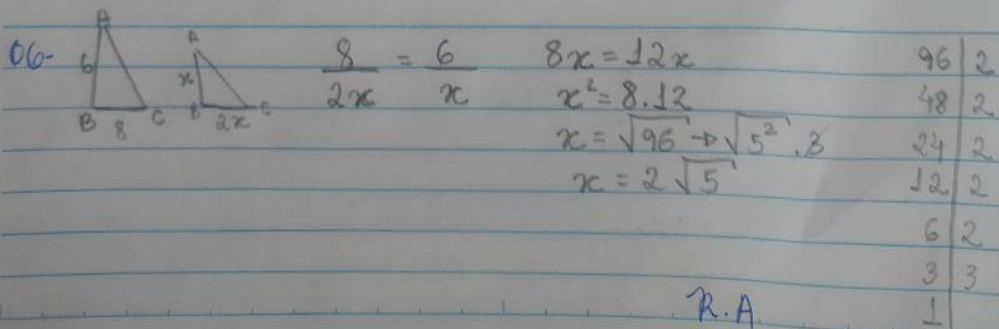 06-
A
6
B 8 C
A
x
B 2x C
8/2x = 6/x
8x = 12x
x² = 8.12
x = √96 → √5² . 3
x = 2√5
96 | 2
48 | 2
24 | 2
12 | 2
6 | 2
3 | 3
1
R.A